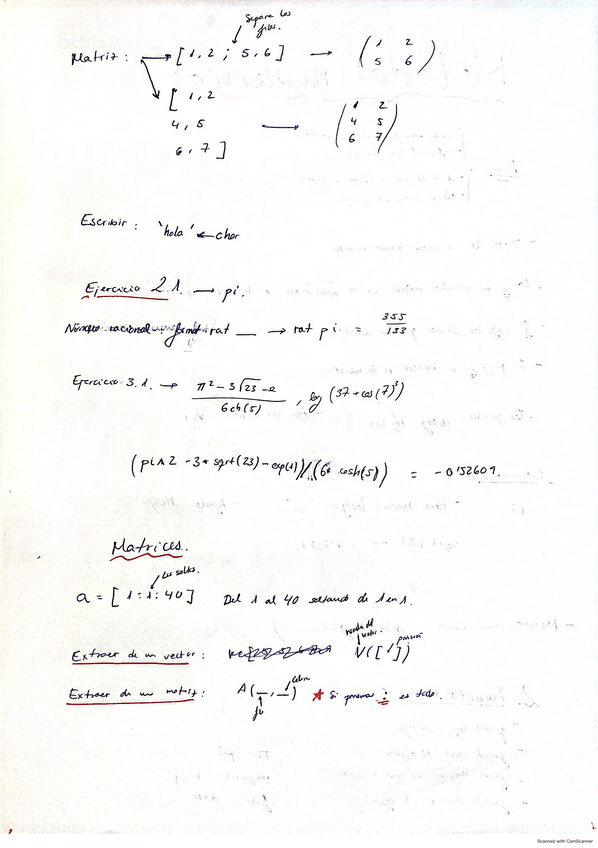 Separa las
filas.
Matriz : → [ 1, 2 ; 5, 6 ] → ( 1 2
5 6 )
[ 1, 2
4, 5
6, 7 ] → ( 1 2
4 5
6 7 )
Escribir : 'hola' ← char
Ejercicio 2.1. → pi.
Número racional : format rat __ → rat pi = 355/133
Ejercicio 3.1. → π² - 3√23 - e / 6ch(5) , log (37 + cos(7)³)
(pi^2 - 3* sqrt(23) - exp(1))/(6* cosh(5)) = -0'152601.
Matrices.
Los saltos.
a = [ 1 : 1 : 40 ] Del 1 al 40 saltando de 1 en 1.
nombre del
vector. posición
Extraer de un vector : V([ 1 ])
Extraer de una matriz : A (__, __) ★ Si ponemos : es todo.
Scanned with CamScanner